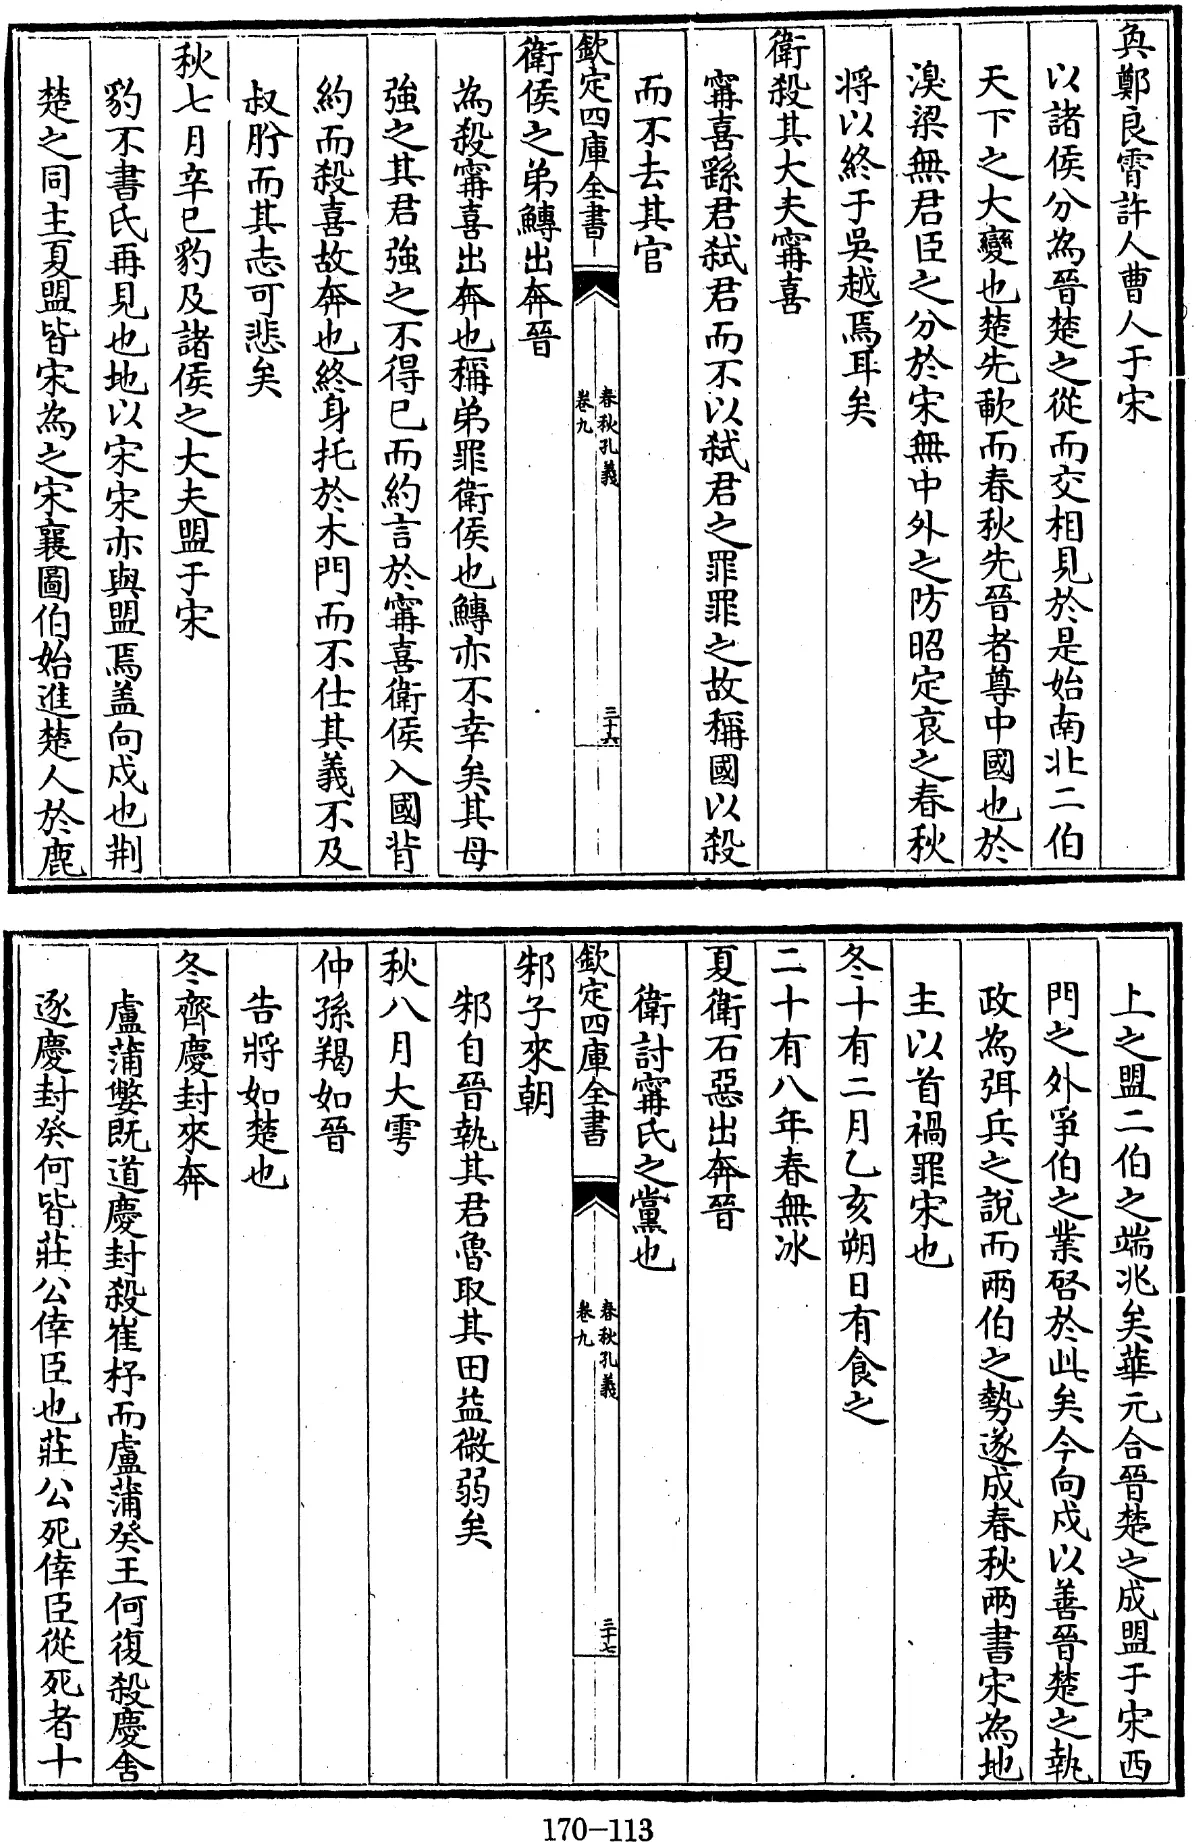 奐鄭良霄許人曹人于宋
以諸侯分為晉楚之從而交相見於是始南北二伯
天下之大變也楚先歃而春秋先晉者尊中國也於
溴梁無君臣之分於宋無中外之防昭定哀之春秋
將以終于吳越焉耳矣
衛殺其大夫甯喜
甯喜繇君弑君而不以弑君之罪罪之故稱國以殺
而不去其官
欽定四庫全書
春秋孔義
卷九
三十六
衛侯之弟鱄出奔晉
為殺甯喜出奔也稱弟罪衛侯也鱄亦不幸矣其母
強之其君強之不得已而約言於甯喜衛侯入國背
約而殺喜故奔也終身托於木門而不仕其義不及
叔肸而其志可悲矣
秋七月辛巳豹及諸侯之大夫盟于宋
豹不書氏再見也地以宋宋亦與盟焉盖向戌也荆
楚之同主夏盟皆宋為之宋襄圖伯始進楚人於鹿
上之盟二伯之端兆矣華元合晉楚之成盟于宋西
門之外爭伯之業啓於此矣今向戌以善晉楚之執
政為弭兵之說而兩伯之勢遂成春秋兩書宋為地
主以首禍罪宋也
冬十有二月乙亥朔日有食之
二十有八年春無冰
夏衛石惡出奔晉
衛討甯氏之黨也
欽定四庫全書
春秋孔義
卷九
三十七
邾子來朝
邾自晉執其君魯取其田益微弱矣
秋八月大雩
仲孫羯如晉
告將如楚也
冬齊慶封來奔
盧蒲嫳既道慶封殺崔杼而盧蒲癸王何復殺慶舍
逐慶封癸何皆莊公倖臣也莊公死倖臣從死者十
170-113